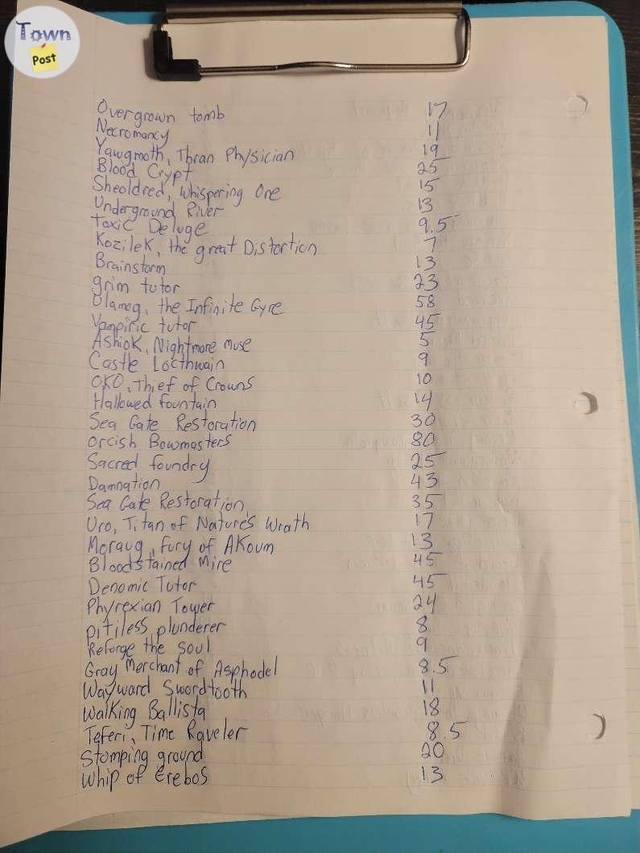 Town
Post
Overgrown tomb 17
Necromancy 11
Yawgmoth, Thran Physician 19
Blood Crypt 25
Sheoldred, Whispering One 15
Underground River 13
Toxic Deluge 9.5
Kozilek, the great Distortion 7
Brainstorm 13
grim tutor 23
Ulamog, the Infinite Gyre 58
Vampiric tutor 45
Ashiok, Nightmare muse 5
Castle Locthwain 9
OKO, Thief of Crowns 10
Hallowed fountain 14
Sea Gate Restoration 30
Orcish Bowmasters 80
Sacred foundry 25
Damnation 43
Sea Gate Restoration 35
Uro, Titan of Nature's Wrath 17
Moraug, fury of Akoum 13
Bloodstained Mire 45
Denomic Tutor 45
Phyrexian Tower 24
pitiless plunderer 8
Reforge the soul 9
Gray Merchant of Asphodel 8.5
Wayward Swordtooth 11
Walking Ballista 18
Teferi, Time Raveler 8.5
Stomping ground 20
Whip of Erebos 13